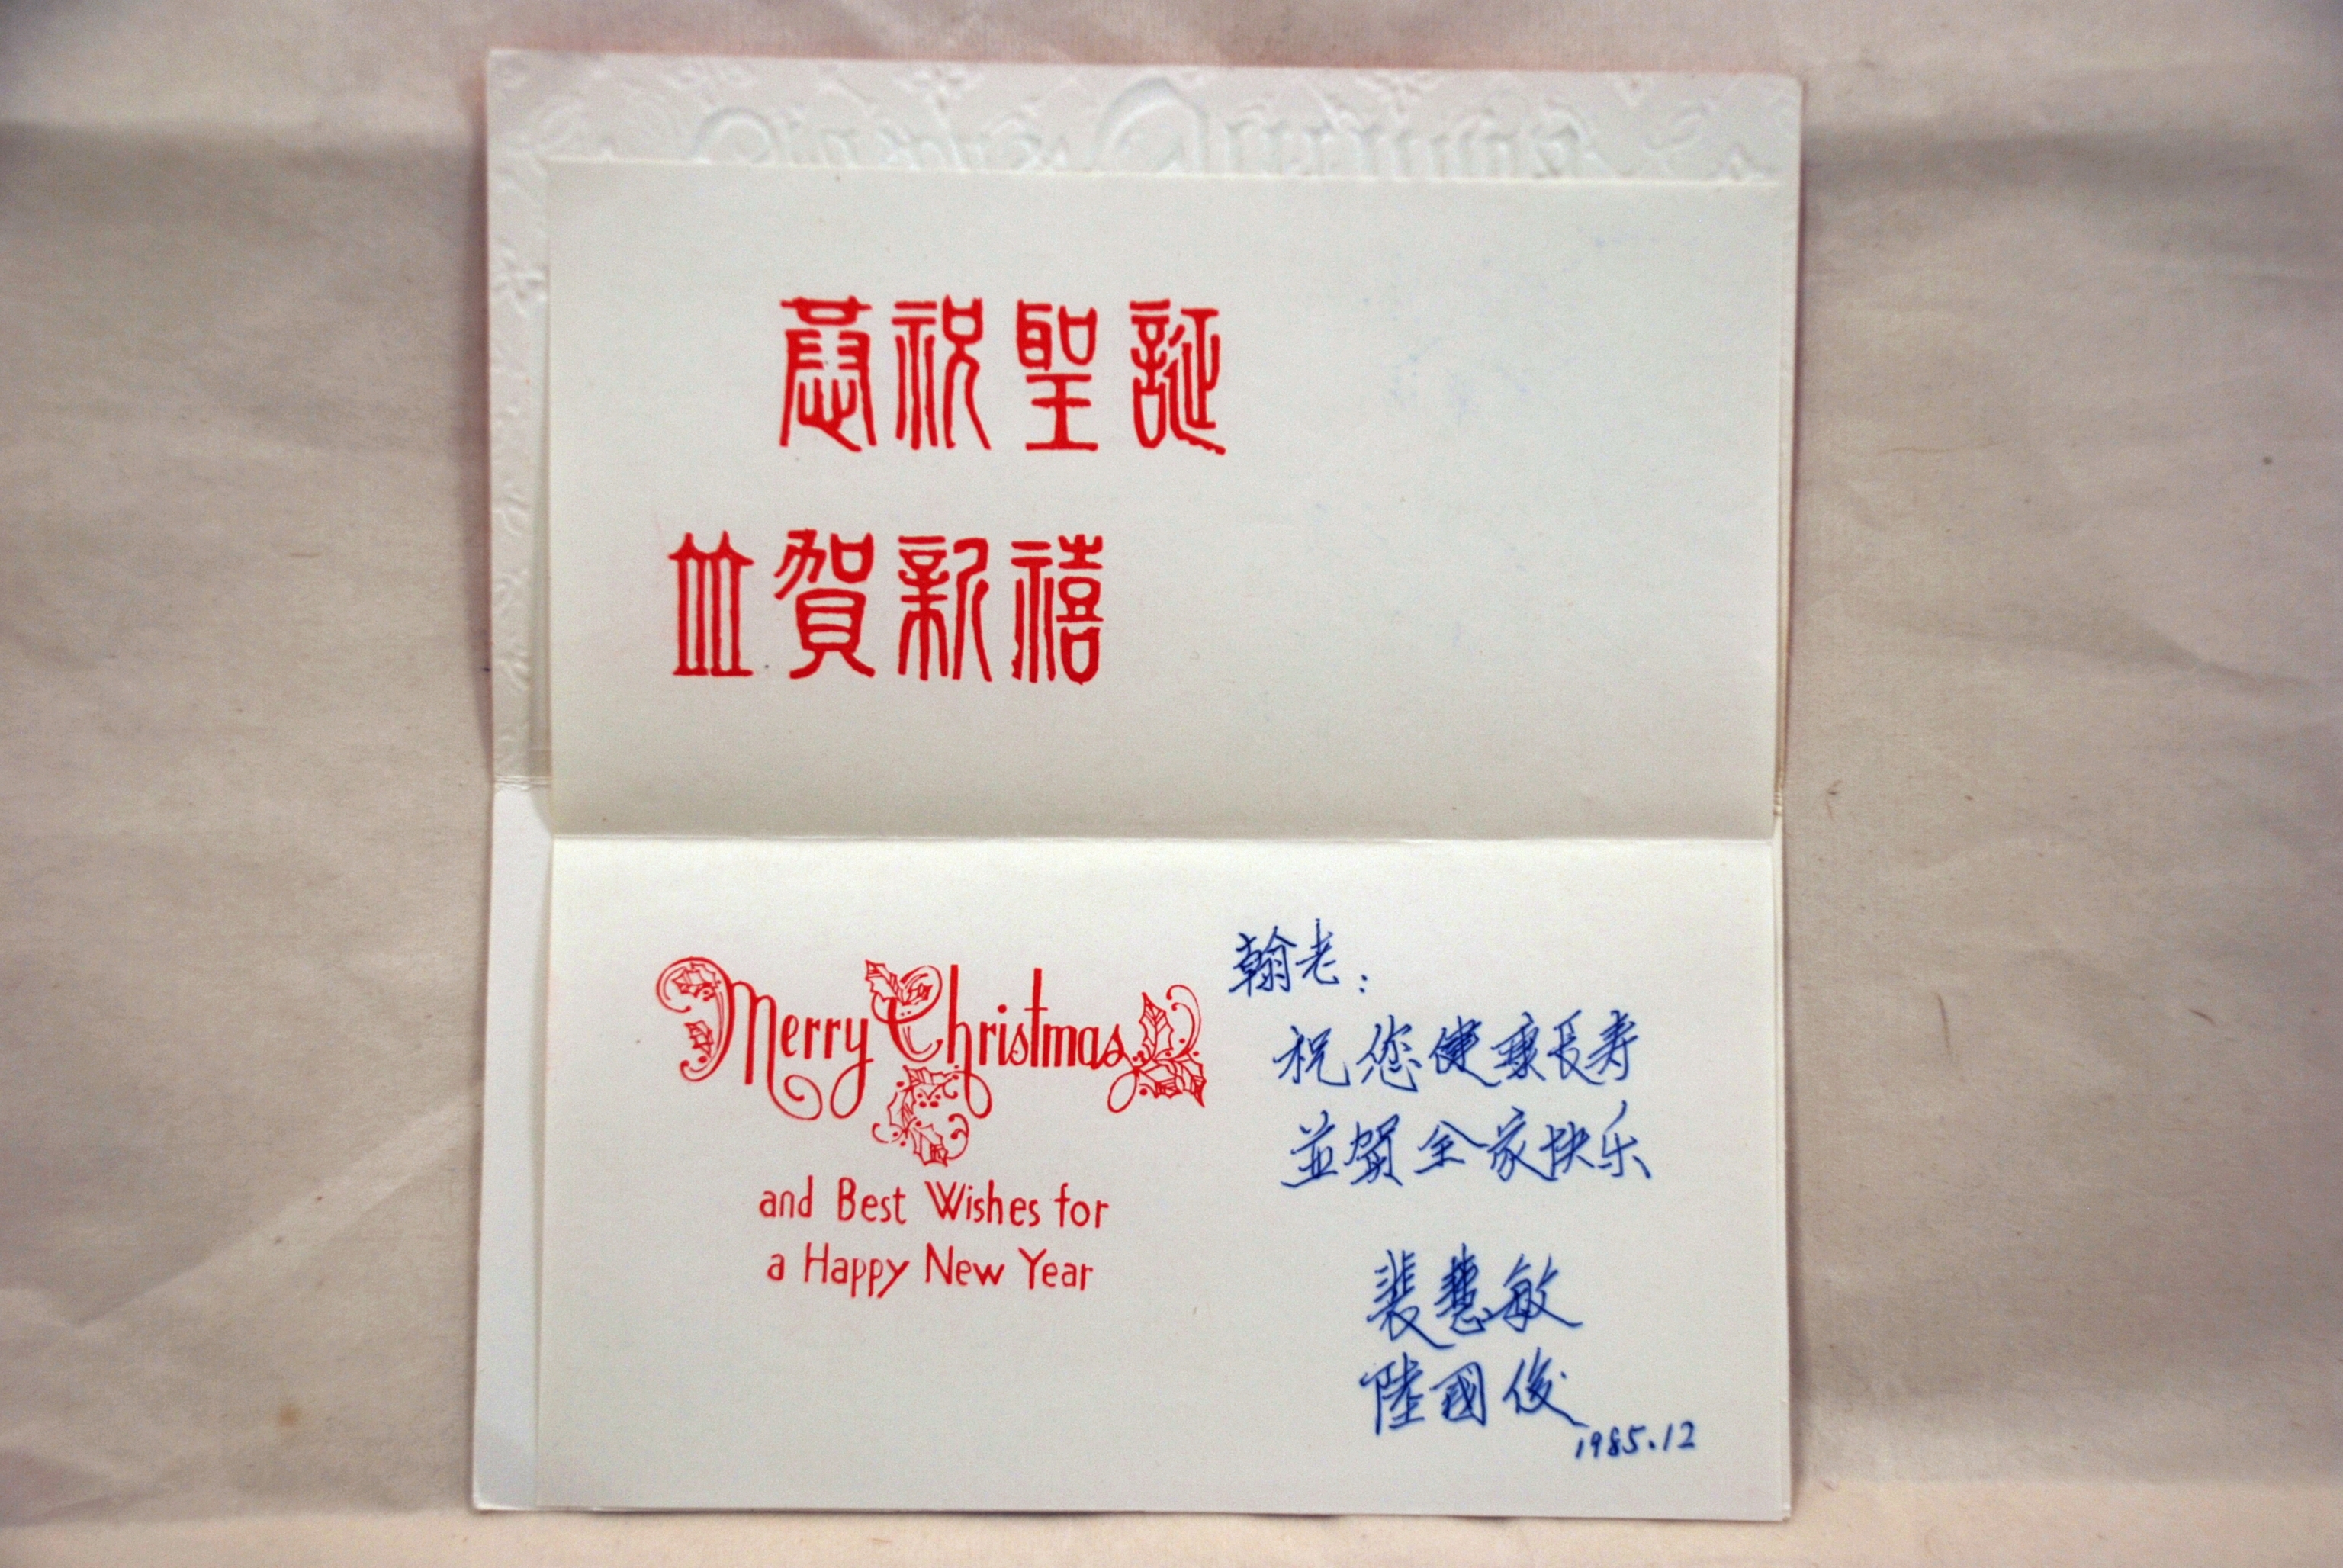 恭祝聖誕
並賀新禧
Merry Christmas
and Best Wishes for
a Happy New Year
翰老:
祝您健康長寿
並賀全家快乐
裴慧敏
陸國俊
1985.12